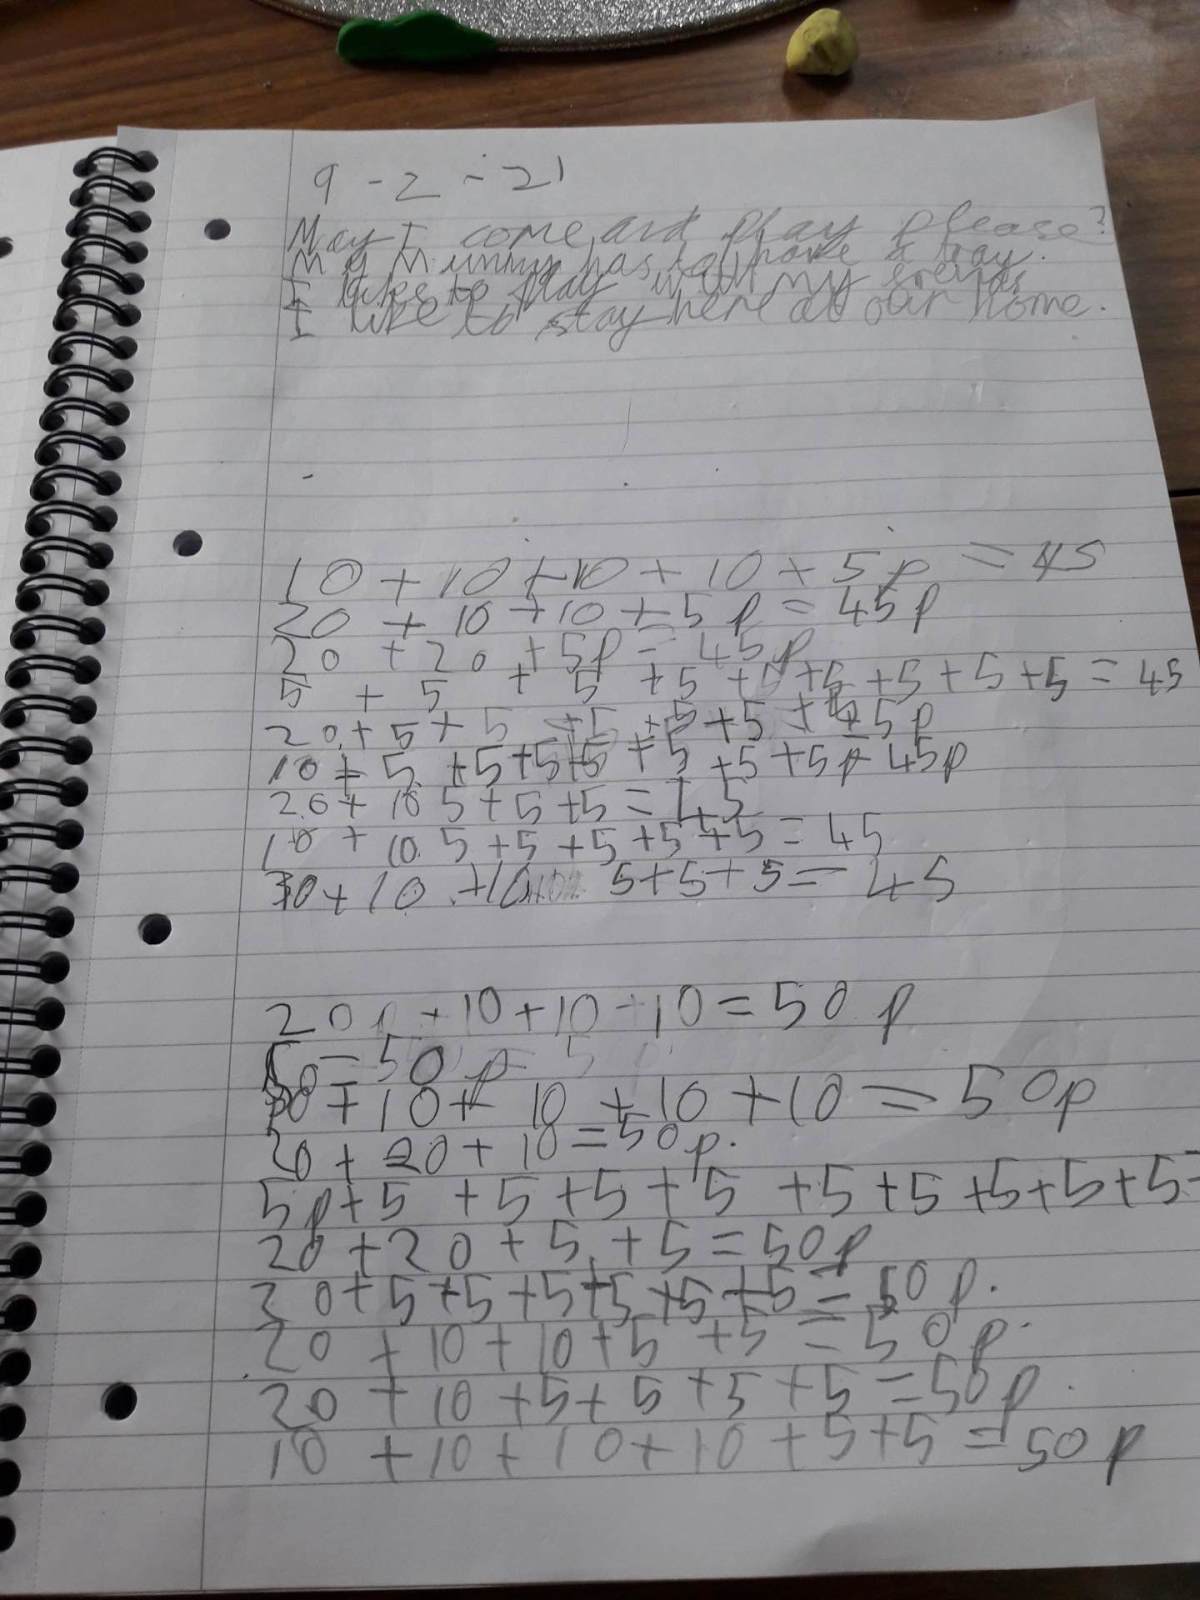 9 - 2 - 21
May I come and play please?
My Mummy has to have a tray.
I like to play with my friends
I like to stay here at our home.
10 + 10 + 10 + 10 + 5p = 45
20 + 10 + 10 + 5p = 45p
20 + 20 + 5p = 45p
5 + 5 + 5 + 5 + 5 + 5 + 5 + 5 + 5 = 45
20 + 5 + 5 + 5 + 5 + 5p
10 + 5 + 5 + 5 + 5 + 5 + 5 + 5p 45p
20 + 10 5 + 5 + 5 = 45
10 + 10 5 + 5 + 5 + 5 + 5 = 45
10 + 10 + 10 5 + 5 + 5 = 45
20p + 10 + 10 + 10 = 50p
= 50p
10 + 10 + 10 + 10 + 10 = 50p
20 + 20 + 10 = 50p.
5p + 5 + 5 + 5 + 5 + 5 + 5 + 5 + 5 + 5 =
20 + 20 + 5 + 5 = 50p
20 + 5 + 5 + 5 + 5 + 5 + 5 = 50p.
20 + 10 + 10 + 5 + 5 = 50p.
20 + 10 + 5 + 5 + 5 + 5 = 50p.
10 + 10 + 10 + 10 + 5 + 5 = 50p